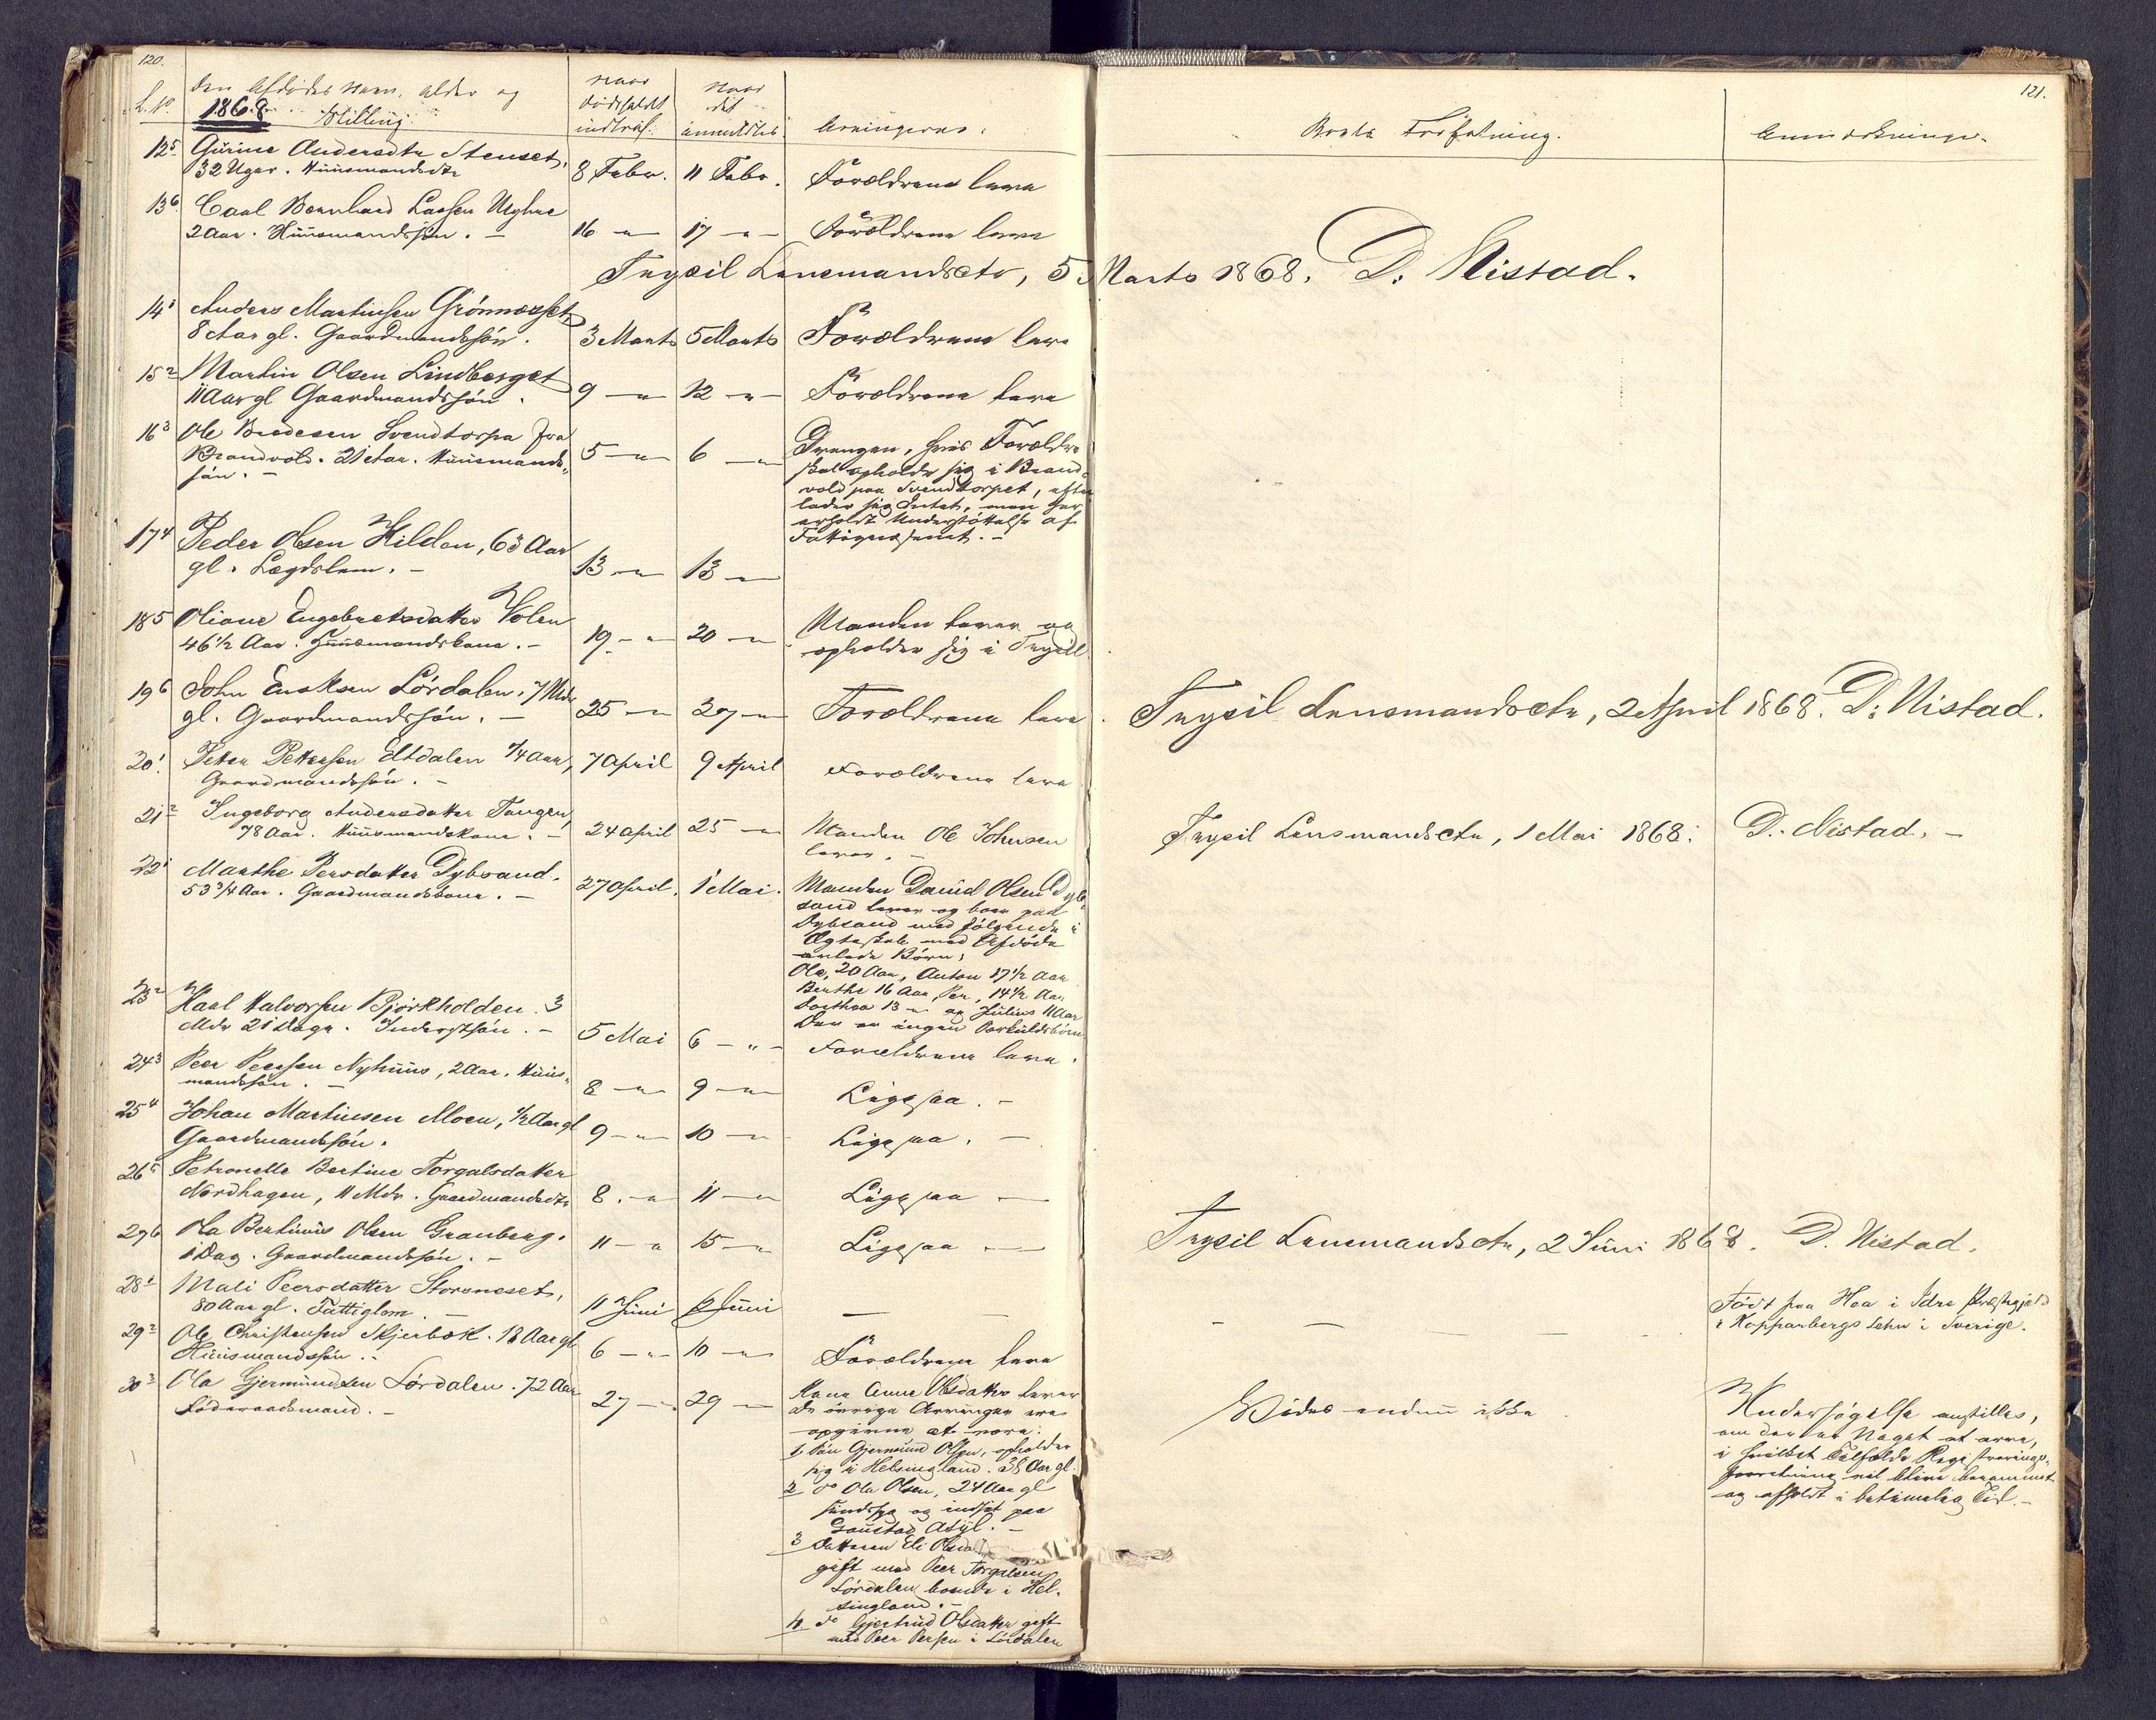 120.
L. No
Den Afdødes Navn, Alder og
1868. Stilling.
Naar
Dødsfaldet
indtraf.
Naar
det
anmeldtes.
Arvingerne.
12 5 Gurine Andersdtr Stenset,
32 Uger. Huusmandsdtr
8 Febr. 11 Febr. Forældrene leve
13 6 Carl Bernhard Larsen
2 Aar. Huusmandssøn. –
16 – " – 17 – " – Forældrene leve
Trysil Lensmandsctr, 5 Marts 1868. D. Nistad.
14 1 Anders Martinsen Grønnæsset
8 Aar gl. Gaardmandssøn.
3 Marts 5 Marts Forældrene leve
15 2 Martin Olsen Lindberget
11 Aar gl Gaardmandssøn.
9 – " 12 – " – Forældrene leve
16 3 Ole Bredesen Svendtorpa fra
Brandvold. 21 Aar. Huusmands-
søn. –
5 – " 6 – "
Drengen, hvis Forældre
skal opholde sig i Brand-
vold paa Svendtorpet, efter-
lader sig Intet, men har
erholdt Understøttelse af
Fattigvæsenet. –
17 4 Peder Olsen Hilden, 63 Aar
gl. Lægdslem. –
13 – " 13 – "
18 5 Oliane Engebretsdatter Volen
46 1/2 Aar. Huusmandskone. –
19 – " 20 – "
Manden lever og
opholder sig i Trysil.
19 6 John Eriksen Lørdalen, 7 Mdr
gl. Gaardmandssøn. –
25 – " 27 – " Forældrene leve.
Trysil Lensmandsctr, 2 April 1868. D. Nistad.
20 1 Peter Pettersen Eltdalen 1/4 Aar,
Gaardmandssøn. –
7 April 9 April Forældrene leve
21 2 Ingeborg Andersdatter Tangen,
78 Aar. Huusmandskone. –
24 April 25 – "
Manden Ole Johnsen
lever. –
Trysil Lensmandsctr, 1 Mai 1868. D. Nistad. –
22 1 Marthe Persdatter Dybsand.
53 3/4 Aar. Gaardmandskone. –
27 April. 1 Mai.
Manden Daniel Olsen Dyb-
sand lever og boer paa
Dybsand med følgende i
Ægteskab med Afdøde
avlede Børn:
Ole, 20 Aar, Anton 17 1/2 Aar
Berthe 16 Aar, Per, 14 1/2 Aar
Dorthea 13 – " og Julius 11 Aar
Der er ingen Særkuldsbørn
23 2 Karl Halvorsen Bjørkholden. 3
Mdr 21 Dage. Inderstsøn. –
5 Mai 6 – " – Forældrene leve.
24 3 Peer Peersen Nyhuus, 2 Aar. Huus-
mandssøn. –
8 – " 9 – " Ligesaa. –
25 4 Johan Martinsen Moen, 1/2 Aar gl
Gaardmandssøn.
9 – " 10 – " Ligesaa. –
26 5 Petronelle Bertine Torgalsdatter
Nordhagen, 11 Mdr. Gaardmandsdtr
8. – " 11 – " Ligesaa –
27 6 Ola Bertinus Olsen Granberg.
1 Dag. Gaardmandssøn. –
11 – " 15 – " Ligesaa –
Trysil Lensmandsctr, 2 Juni 1868. D. Nistad.
28 1 Mali Peersdatter Storeneset,
80 Aar gl. Fattiglem. –
11 Juni Juni –
Født paa Hea i Idre Præstegjeld
i Kopparbergs Lehn i Sverige.
29 2 Ole Christensen Skjerbæk. 18 Aar gl
Huusmandssøn. –
6 – " – 10 – " Forældrene leve
30 3 Ola Gjermundsen Lørdalen. 72 Aar
Føderaadsmand. –
27 – " 29 – "
Kone Anne Olsdatter lever
De øvrige Arvinger ere
opgivne at være:
1. Søn Gjermund Olsen, opholder
sig i Helsingland. 38 Aar gl.
2 do Ola Olsen, 24 Aar gl
sindssyg og indsat paa
Gaustad Asyl. –
3 Datteren Eli
gift med Peer Torgalsen
Lørdalen, boende i Hel-
singland. –
4 do Gjertrud Olsdatter gift
med Peer Persen i Lørdalen
121.
Bortsat Forfatning.
Anmærkninger.
Vides endnu ikke
Undersøgelse anstilles,
om der er Noget at arve,
i hvilket Tilfælde Registrerings-
forretning vil blive berammet
og afholdt i betimelig Tid. –